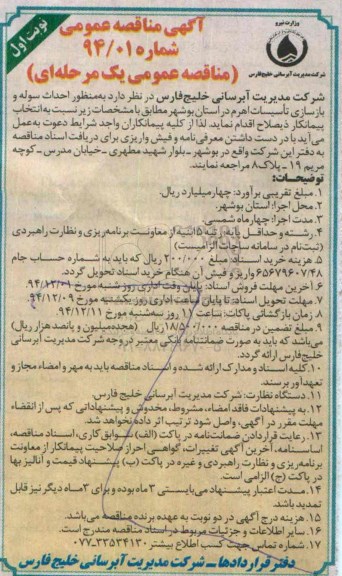 نوبت اول
وزارت نیرو
شرکت مدیریت آبرسانی خلیج‌فارس
آگهی مناقصه عمومی
شماره ۹۴/۰۱
(مناقصه عمومی یک مرحله‌ای)
شرکت مدیریت آبرسانی خلیج‌فارس در نظر دارد به‌منظور احداث سوله و
بازسازی تأسیسات اهرم در استان بوشهر مطابق با مشخصات زیر نسبت به انتخاب
پیمانکار ذیصلاح اقدام نماید. لذا از کلیه پیمانکاران واجد شرایط دعوت به‌عمل
می‌آید با در دست داشتن معرفی‌نامه و فیش واریزی برای دریافت اسناد مناقصه
به دفتر این شرکت واقع در بوشهر ـ بلوار شهید مطهری ـ خیابان مدرس ـ کوچه
مریم ۱۹ ـ پلاک ۸ مراجعه نمایند.
توضیحات:
۱. مبلغ تقریبی برآورد: چهار میلیارد ریال.
۲. محل اجرا: استان بوشهر.
۳. مدت اجرا: چهار ماه شمسی.
۴. رشته و حداقل پایه رتبه ۵ ابنیه از معاونت برنامه‌ریزی و نظارت راهبردی
(ثبت‌نام در سامانه ساجات الزامیست)
۵. هزینه خرید اسناد: مبلغ ۲۰۰/۰۰۰ ریال که باید به شماره حساب جام
۶۵۶۷۹۶۰۷/۴۸ واریز و فیش آن هنگام خرید اسناد تحویل گردد.
۶. آخرین مهلت فروش اسناد: پایان وقت اداری روز شنبه مورخ ۹۴/۱۲/۰۱.
۷. مهلت تحویل اسناد: تا پایان ساعت اداری روز یکشنبه مورخ ۹۴/۱۲/۰۹.
۸. زمان بازگشائی پاکات: ساعت ۱۱ روز سه‌شنبه مورخ ۹۴/۱۲/۱۱.
۹. مبلغ تضمین در مناقصه ۱۸/۵۰۰/۰۰۰ ریال (هجده میلیون و پانصد هزار ریال)
می‌باشد که باید به صورت ضمانتنامه بانکی معتبر در وجه شرکت مدیریت آبرسانی
خلیج‌فارس ارائه گردد.
۱۰. کلیه اسناد و مدارک ارائه شده و اسناد مناقصه باید به مهر و امضاء مجاز و
تعهدآور برسند.
۱۱. دستگاه نظارت: شرکت مدیریت آبرسانی خلیج فارس.
۱۲. به پیشنهادات فاقد امضاء، مشروط، مخدوش و پیشنهاداتی که پس از انقضاء
مهلت مقرر در آگهی، واصل شود ترتیب اثر داده نخواهد شد.
۱۳. رعایت قرار دادن ضمانت‌نامه در پاکت (الف) سوابق کاری، اسناد مناقصه،
اساسنامه، آخرین آگهی تغییرات، گواهی احراز صلاحیت پیمانکار از معاونت
برنامه‌ریزی و نظارت راهبردی و غیره در پاکت (ب) پیشنهاد قیمت و آنالیز بها
در پاکت (ج) الزامی است.
۱۴. مدت اعتبار پیشنهاد می‌بایستی ۳ ماه بوده و برای ۳ ماه دیگر نیز قابل
تمدید باشد.
۱۵. هزینه درج آگهی در دو نوبت به عهده برنده مناقصه می‌باشد.
۱۶. سایر اطلاعات و جزئیات مربوط در اسناد مناقصه مندرج است.
۱۷. شماره تماس جهت کسب اطلاع بیشتر: ۳۳۵۳۴۱۳۰-۰۷۷
دفتر قراردادها ـ شرکت مدیریت آبرسانی خلیج فارس